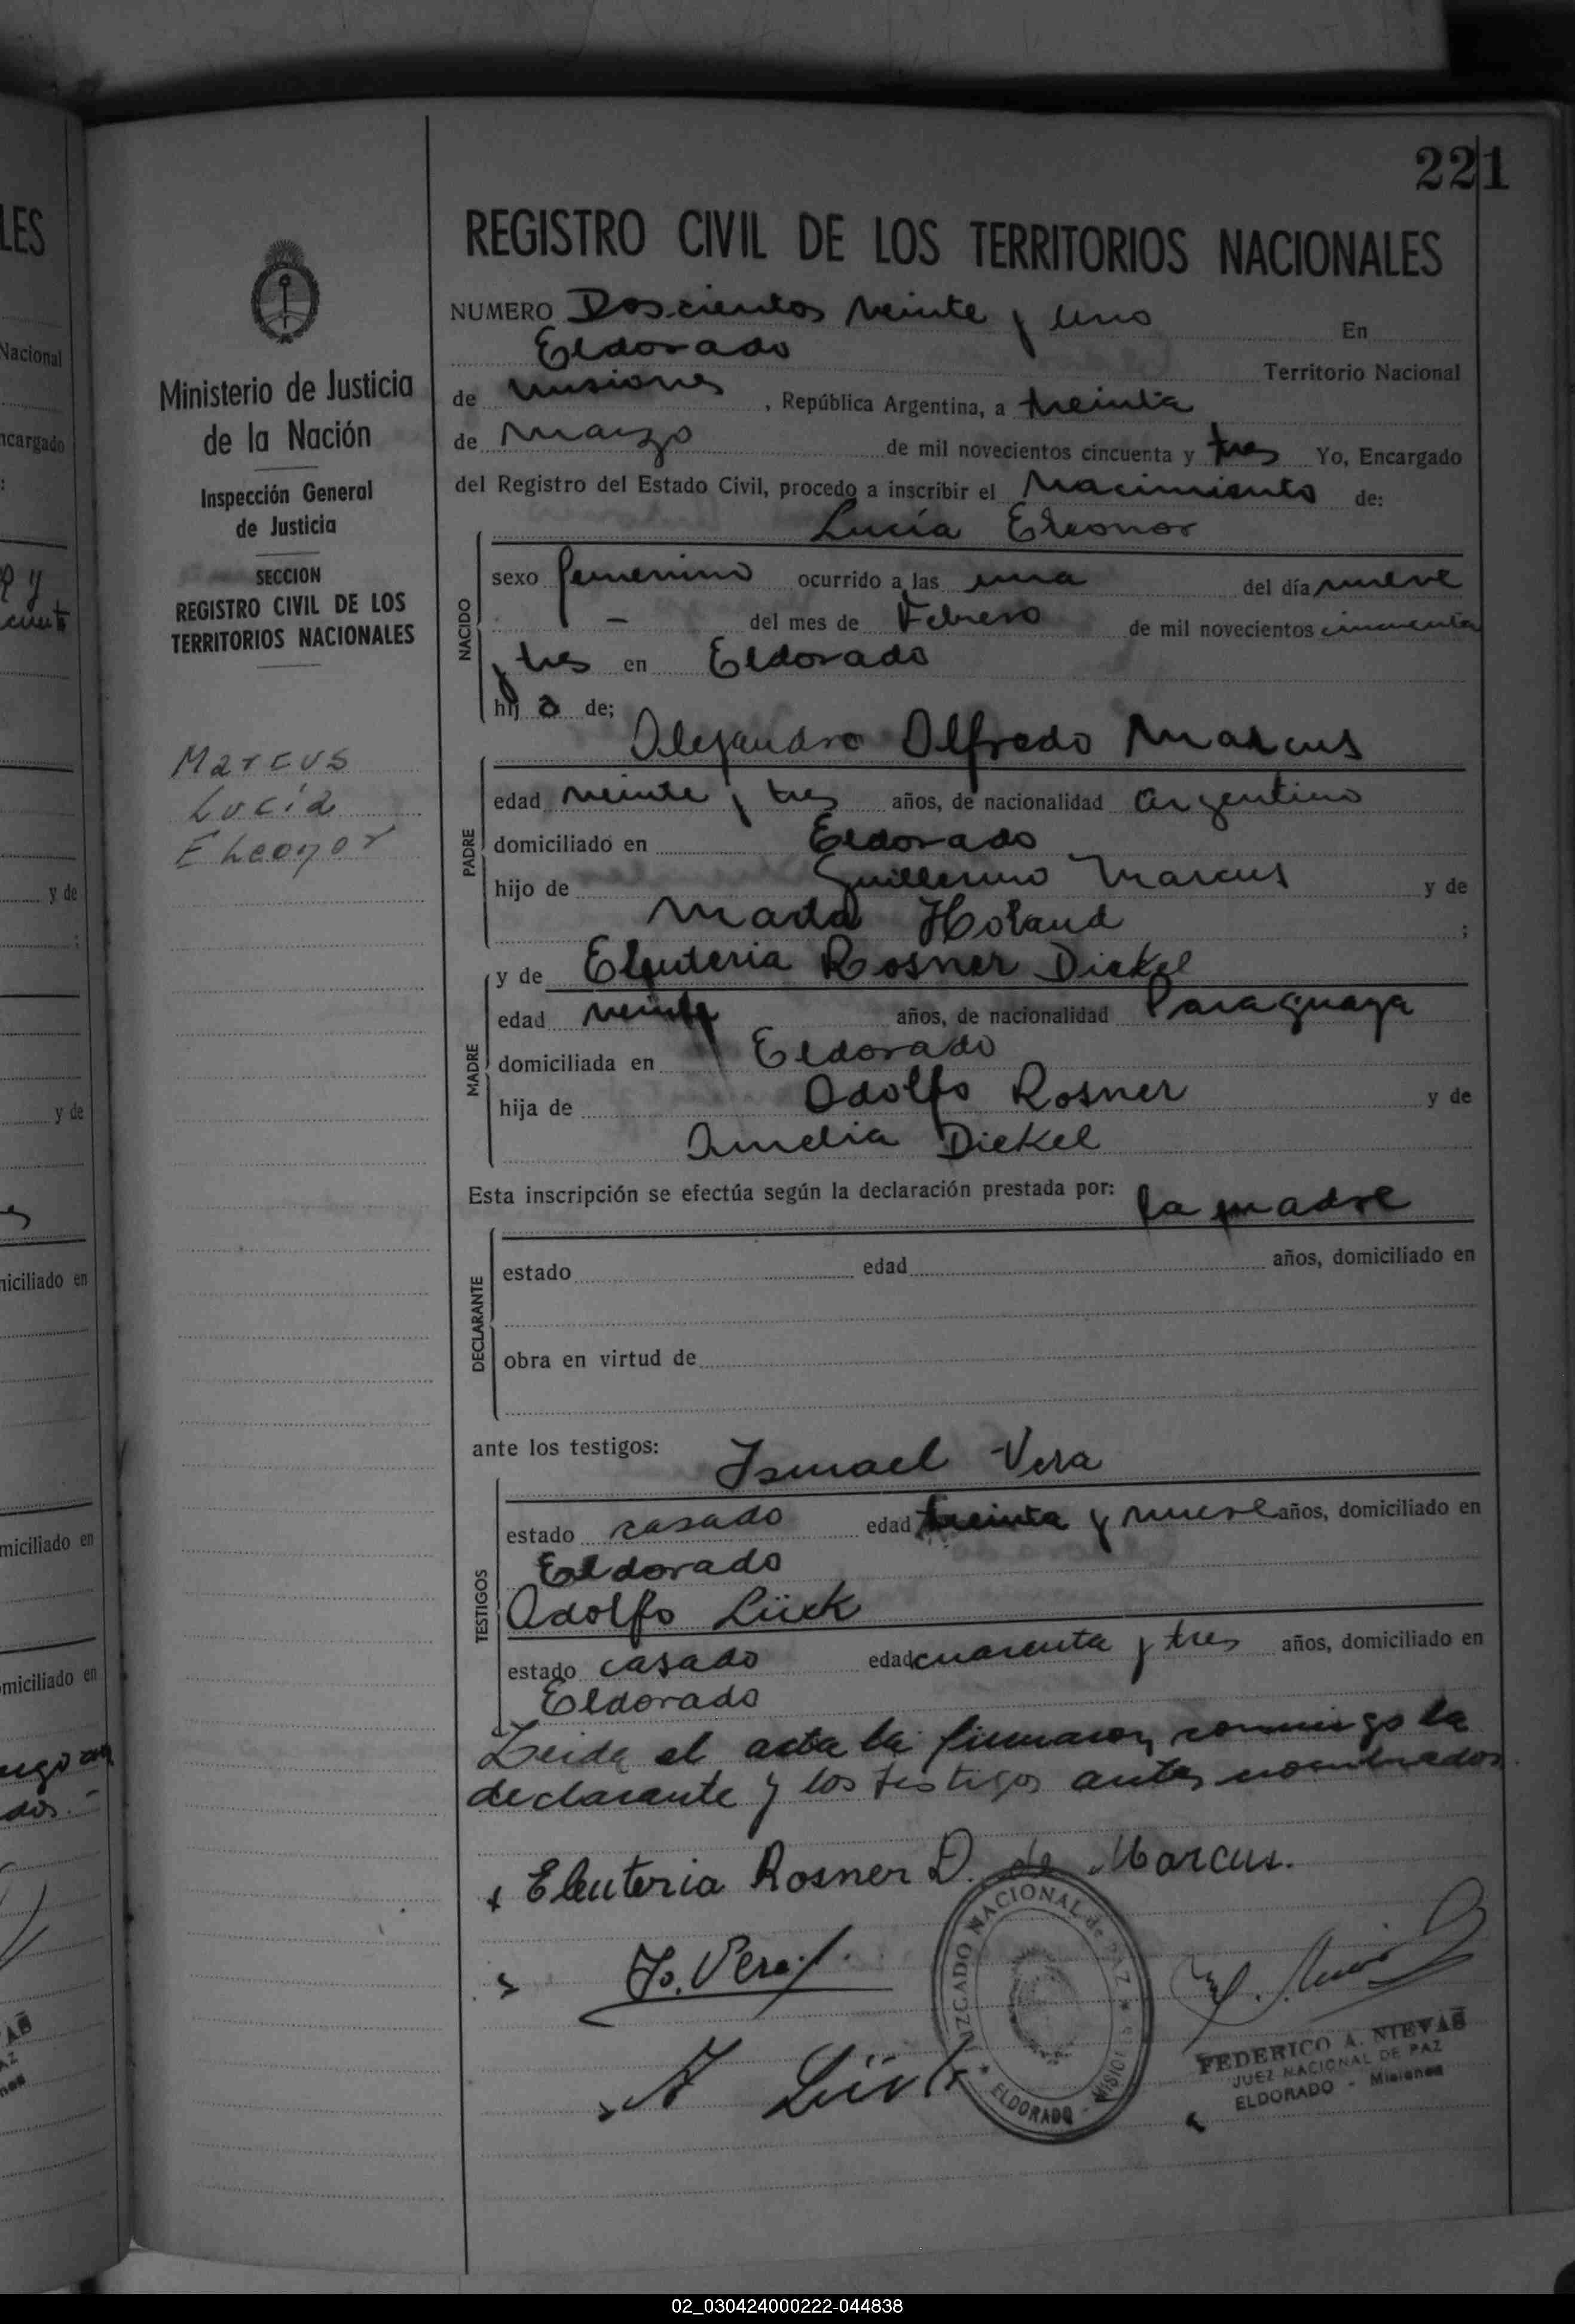 221
REGISTRO CIVIL DE LOS TERRITORIOS NACIONALES
NUMERO Doscientos veinte y uno En
Eldorado Territorio Nacional
de Misiones, República Argentina, a treinta
de Marzo de mil novecientos cincuenta y tres Yo, Encargado
del Registro del Estado Civil, procedo a inscribir el Nacimiento de:
Lucía Eleonor
NACIDO
sexo femenino ocurrido a las una del día nueve
— del mes de Febrero de mil novecientos cincuenta
y tres en Eldorado
hij a de;
Alejandro Alfredo Marcus
PADRE
edad veinte y tres años, de nacionalidad argentino
domiciliado en Eldorado
hijo de Guillermo Marcus y de
Marta Holand ;
MADRE
y de Eleuteria Rosner Dickel
edad veinte años, de nacionalidad Paraguaya
domiciliada en Eldorado
hija de Adolfo Rosner y de
Amelia Diekel
Esta inscripción se efectúa según la declaración prestada por: la madre
DECLARANTE
estado edad años, domiciliado en
obra en virtud de
ante los testigos: Ismael Vera
TESTIGOS
estado casado edad treinta y nueve años, domiciliado en
Eldorado
Adolfo Lück
estado casado edad cuarenta y tres años, domiciliado en
Eldorado
Leida el acta la firmaron conmigo la
declarante y los testigos antes nombrados
Eleuteria Rosner D. de Marcus.
Vera
A Lück
JUZGADO NACIONAL de PAZ
ELDORADO - MISIONES
FEDERICO A. NIEVAS
JUEZ NACIONAL DE PAZ
ELDORADO - Misiones
Ministerio de Justicia
de la Nación
Inspección General
de Justicia
SECCION
REGISTRO CIVIL DE LOS
TERRITORIOS NACIONALES
Marcus
Lucía
Eleonor
LES
Nacional
ncargado
:
y de
;
y de
niciliado en
miciliado en
miciliado en
02_030424000222-044838